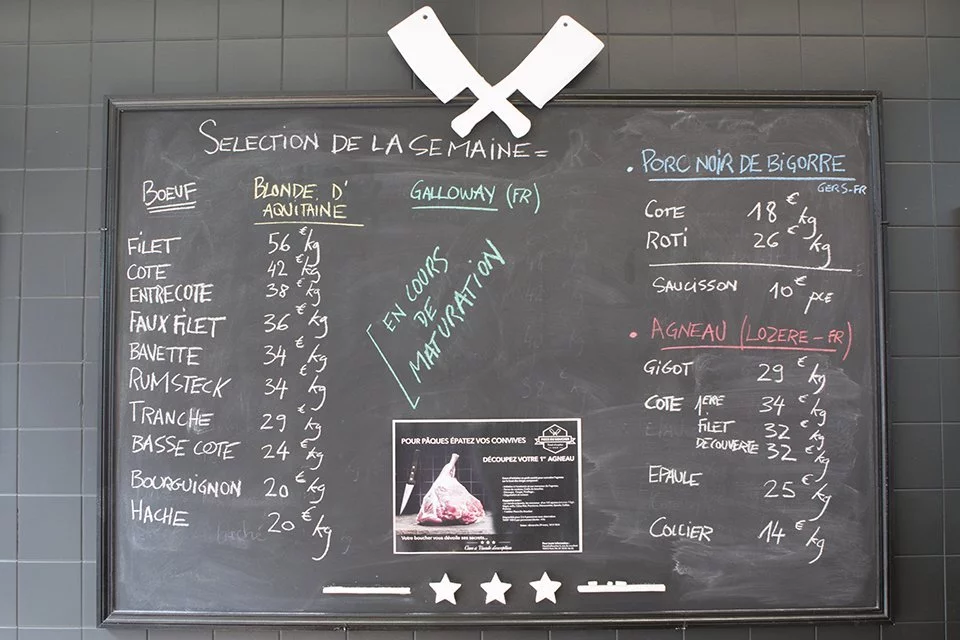 SELECTION DE LA SEMAINE =
BOEUF
BLONDE D'
AQUITAINE
FILET 56 € kg
COTE 42 € kg
ENTRECOTE 38 € kg
FAUX FILET 36 € kg
BAVETTE 34 € kg
RUMSTECK 34 € kg
TRANCHE 29 € kg
BASSE COTE 24 € kg
BOURGUIGNON 20 € kg
HACHE 20 € kg
GALLOWAY (FR)
EN COURS
DE
MATURATION
POUR PÂQUES ÉPATEZ VOS CONVIVES
DÉCOUPEZ VOTRE 1er AGNEAU
Votre boucher vous dévoile ses secrets...
• PORC NOIR DE BIGORRE
GERS-FR
COTE 18 € kg
ROTI 26 € kg
SAUCISSON 10 € pce
• AGNEAU (LOZERE - FR)
GIGOT 29 € kg
COTE 1ERE 34 € kg
FILET 32 € kg
DECOUVERTE 32 € kg
EPAULE 25 € kg
COLLIER 14 € kg